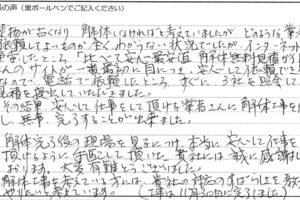 の声（黒ボールペンでご記入ください）
建物が古くなり、解体しなければと考えていましたが、どのような業者
依頼してよいものか全くわからない状況でしたが、インターネット
したところ「比べて安心最安値 解体無料見積ガイ
んのサイトが一番最初に目につき、安心して依頼でき
なかで電話で依頼したところ、すぐに3社を照会して
見積を提出していただきました。
その結果、安心して仕事をして頂ける業者さんに解体工事を
し、無事、完了することが出来ました。
解体完了後の現場を見るにつけ、本当に安心して仕事を
頂けるように手配して頂いた貴社には誠に感謝し
おります。大変有難うございました。
解体工事を考えている方には、貴社の対応のすばらしさを教
やりたいと考えています。（工事は1月30日に完了しました）